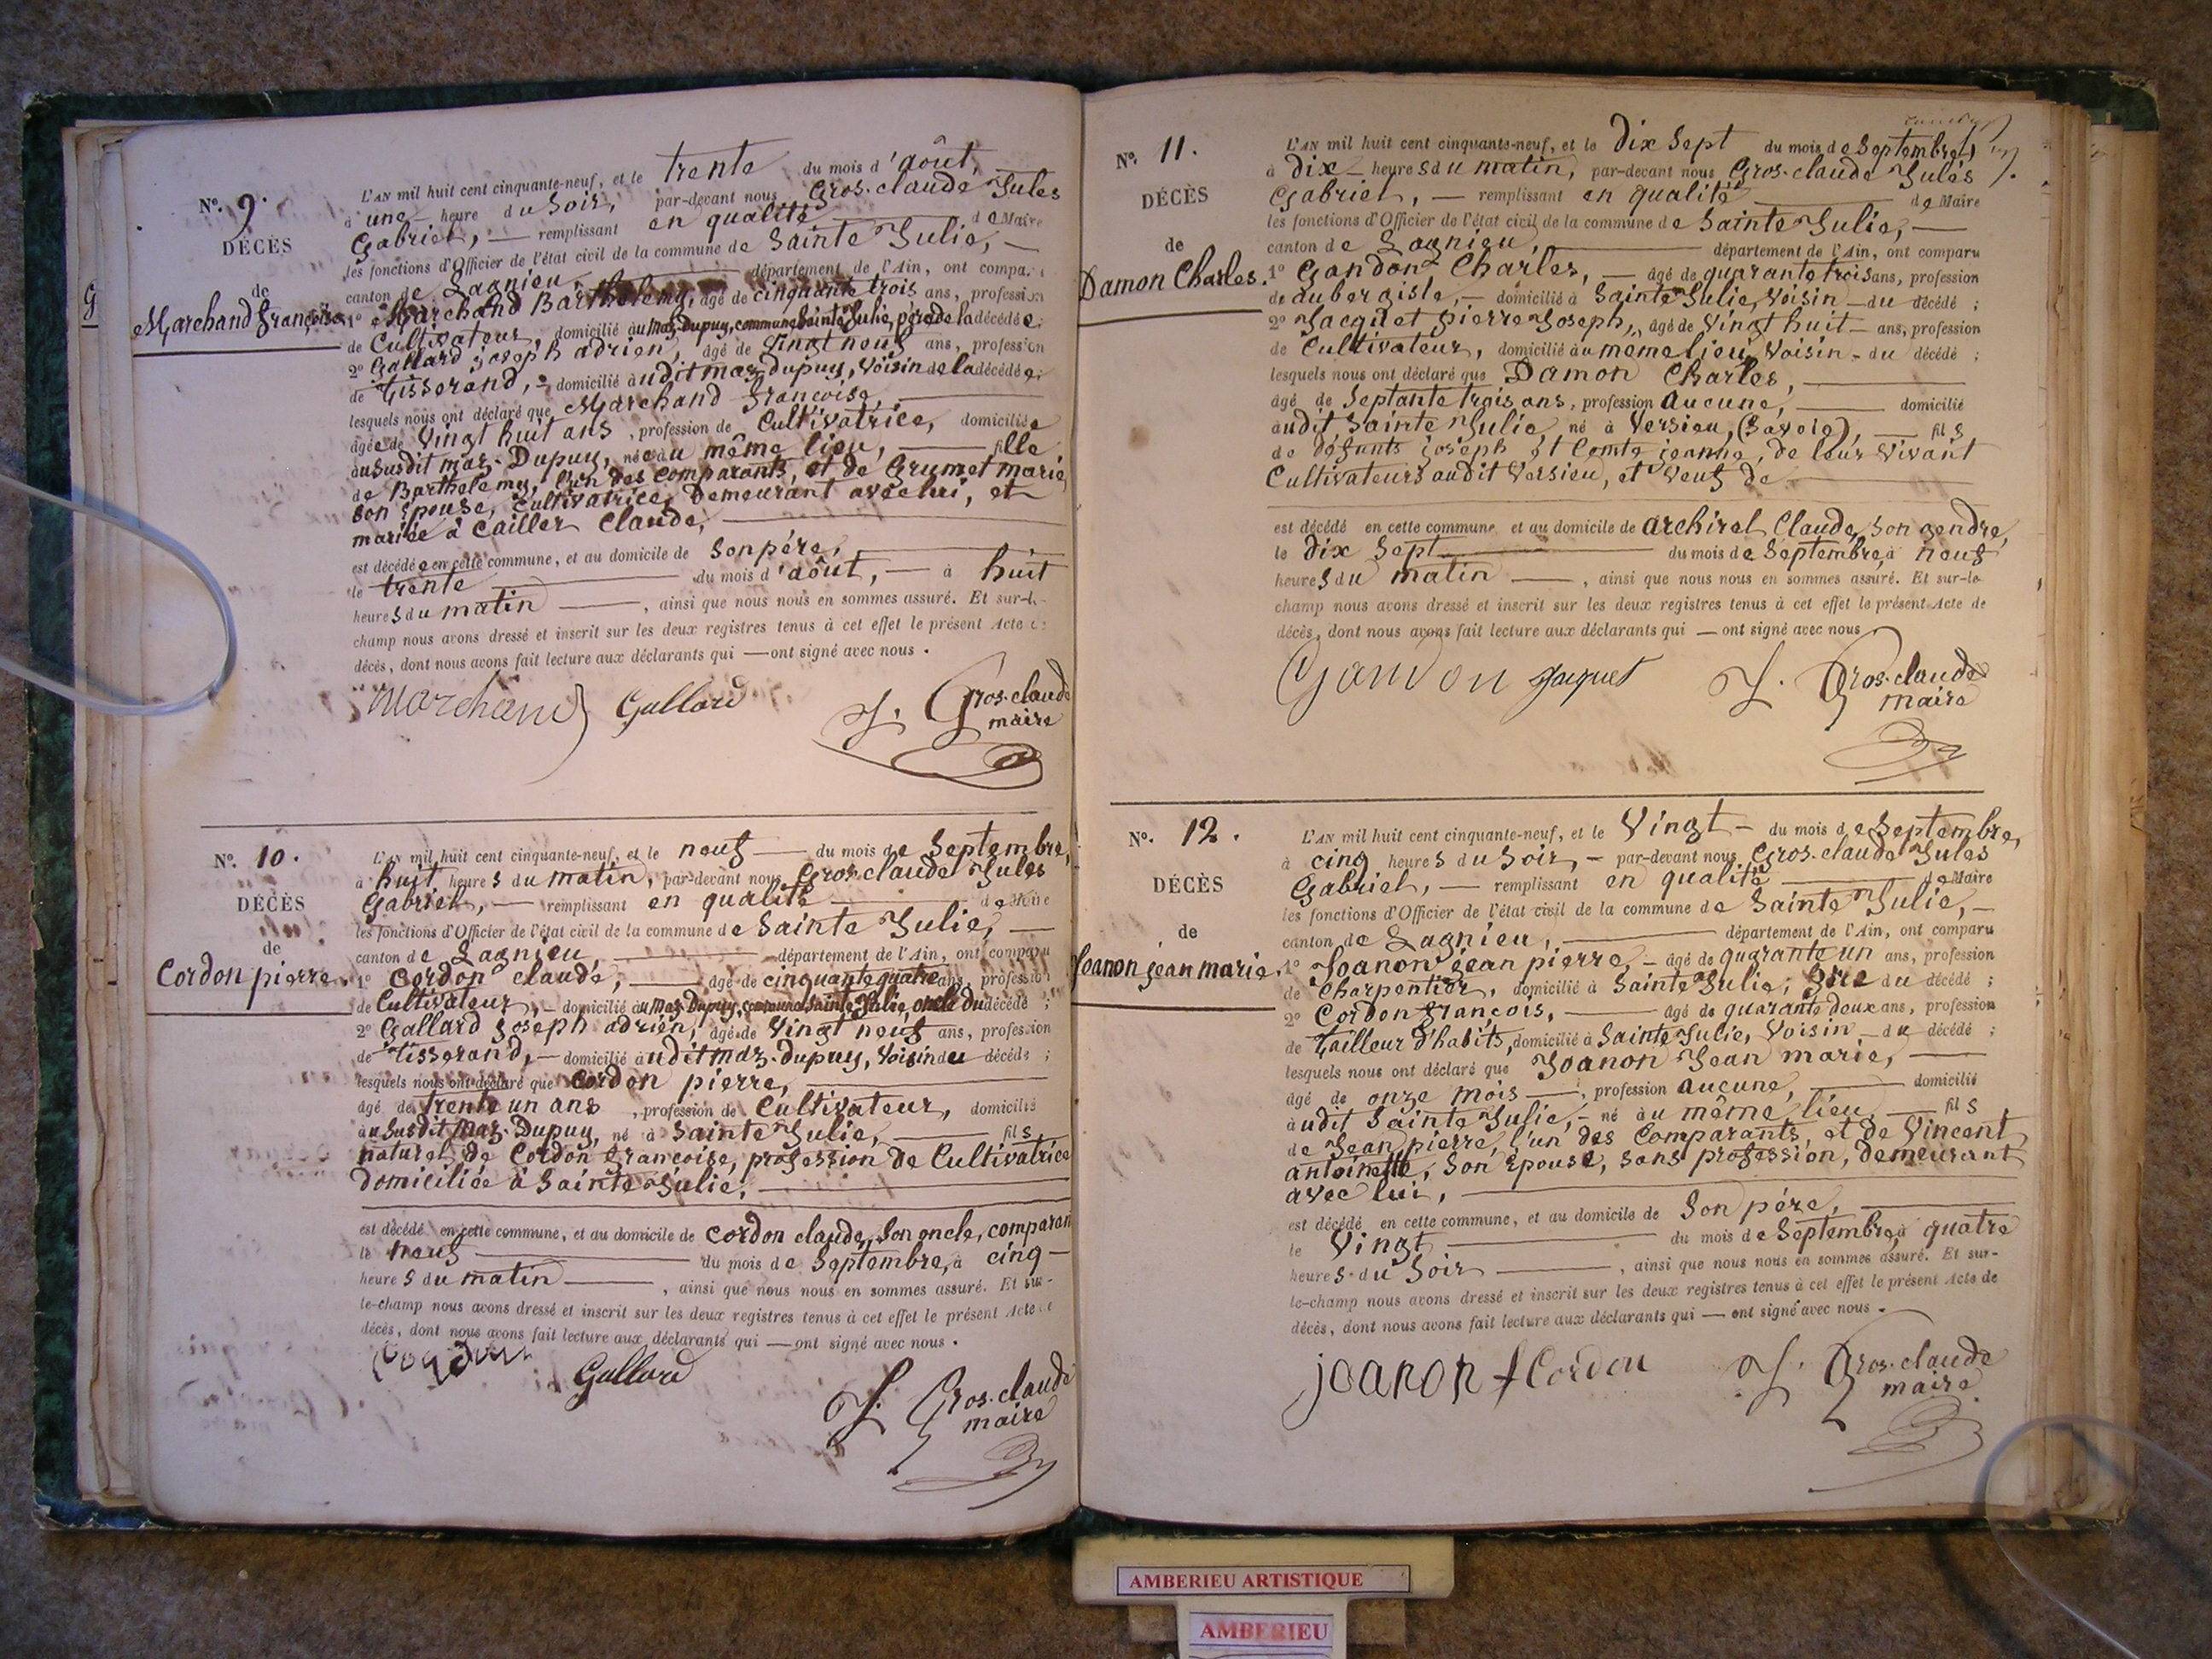 G
N.º 9.
DÉCÈS
de
Marchand françoise
L'AN mil huit cent cinquante-neuf, et le trente du mois d'août,
à une heure du Soir, par-devant nous Gros-claude Jules
Gabriel, — remplissant en qualité de Maire
les fonctions d'Officier de l'état civil de la commune de Sainte Julie, —
canton de Lagnieu, département de l'Ain, ont comparu
1º Marchand Barthélemy, âgé de cinquante trois ans, profession
de Cultivateur, domicilié au Maz-Dupuy, commune Sainte Julie, père de la décédée;
2º Gallard joseph adrien, âgé de Vingt neuf ans, profession
de Tisserand, - domicilié audit maz-dupuy, Voisin de la décédée;
lesquels nous ont déclaré que Marchand françoise,
âgée de Vingt huit ans, profession de Cultivatrice, domiciliée
au Susdit maz-Dupuy, née au même lieu, — fille
de Barthélemy, l'un des Comparants, et de Grumet marie,
son épouse, Cultivatrice, Demeurant avec lui, et
mariée à Cailler Claude,
est décédée en cette commune, et au domicile de Son père,
le trente du mois d'août, — à huit
heures du matin —, ainsi que nous nous en sommes assuré. Et sur-le-
champ nous avons dressé et inscrit sur les deux registres tenus à cet effet le présent Acte de
décès, dont nous avons fait lecture aux déclarants qui — ont signé avec nous.
Marchand Gallard J. Gros-claude
maire
N.º 10.
DÉCÈS
de
Cordon pierre.
L'AN mil huit cent cinquante-neuf, et le neuf — du mois de Septembre,
à huit heures du matin, par-devant nous Gros-claude Jules
Gabriel, — remplissant en qualité de Maire
les fonctions d'Officier de l'état civil de la commune de Sainte Julie, —
canton de Lagnieu, département de l'Ain, ont comparu
1º Cordon claude, âgé de cinquante quatre ans, profession
de Cultivateur, - domicilié au Maz-Dupuy, commune Sainte Julie, oncle du décédé;
2º Gallard Joseph adrien, âgé de Vingt neuf ans, profession
de Tisserand, — domicilié audit maz-dupuy, Voisin du décédé;
lesquels nous ont déclaré que Cordon pierre,
âgé de trente un ans, profession de Cultivateur, domicilié
au Susdit Maz-Dupuy, né à Sainte Julie, — fils
naturel de Cordon françoise, profession de Cultivatrice
domiciliée à Sainte Julie,
est décédé en cette commune, et au domicile de Cordon claude, Son oncle, comparan
le neuf du mois de Septembre, à cinq —
heures du matin —, ainsi que nous nous en sommes assuré. Et sur-
le-champ nous avons dressé et inscrit sur les deux registres tenus à cet effet le présent Acte de
décès, dont nous avons fait lecture aux déclarants qui — ont signé avec nous.
Cordon Gallard J. Gros-claude
maire
N.º 11.
DÉCÈS
de
Damon Charles.
L'AN mil huit cent cinquante-neuf, et le Dix Sept du mois de Septembre,
à Dix — heures du matin, par-devant nous Gros-claude Jules
Gabriel, — remplissant en qualité de Maire
les fonctions d'Officier de l'état civil de la commune de Sainte Julie, —
canton de Lagnieu, département de l'Ain, ont comparu
1º Gandon Charles, — âgé de quarante trois ans, profession
de aubergiste, — domicilié à Sainte Julie, Voisin — du décédé;
2º Jacquet pierre Joseph, âgé de Vingt huit — ans, profession
de Cultivateur, domicilié au meme lieu, Voisin - du décédé;
lesquels nous ont déclaré que Damon Charles,
âgé de Septante trois ans, profession Aucune, domicilié
audit Sainte Julie, né à Versieu, (Savoie), — fils
de défunts joseph et Comte jeanne, de leur Vivant
Cultivateurs audit Versieu, et Veuf de
est décédé en cette commune et au domicile de archirel Claude, Son gendre,
le Dix Sept du mois de Septembre, à neuf
heures du matin —, ainsi que nous nous en sommes assuré. Et sur-le-
champ nous avons dressé et inscrit sur les deux registres tenus à cet effet le présent Acte de
décès, dont nous avons fait lecture aux déclarants qui — ont signé avec nous
Gandon Jaquet J. Gros-claude
maire
N.º 12.
DÉCÈS
de
Joanon jean marie.
L'AN mil huit cent cinquante-neuf, et le Vingt — du mois de Septembre,
à cinq heures du Soir, — par-devant nous Gros-claude Jules
Gabriel, — remplissant en qualité de Maire
les fonctions d'Officier de l'état civil de la commune de Sainte Julie, —
canton de Lagnieu, département de l'Ain, ont comparu
1º Joanon jean pierre, — âgé de quarante un ans, profession
de Charpentier, domicilié à Sainte Julie, père du décédé;
2º Cordon françois, — âgé de quarante deux ans, profession
de Tailleur d'habits, domicilié à Sainte Julie, Voisin — du décédé;
lesquels nous ont déclaré que Joanon Jean marie,
âgé de onze mois —, profession Aucune, domicilié
audit Sainte Julie, - né au même lieu, — fils
de Jean pierre, l'un des Comparants, et de Vincent
antoinette, Son épouse, sans profession, demeurant
avec lui,
est décédé en cette commune, et au domicile de Son père,
le Vingt du mois de Septembre, à quatre
heures du Soir —, ainsi que nous nous en sommes assuré. Et sur-
le-champ nous avons dressé et inscrit sur les deux registres tenus à cet effet le présent Acte de
décès, dont nous avons fait lecture aux déclarants qui — ont signé avec nous.
joanon f Cordon J. Gros-claude
maire
AMBERIEU ARTISTIQUE
AMBERIEU